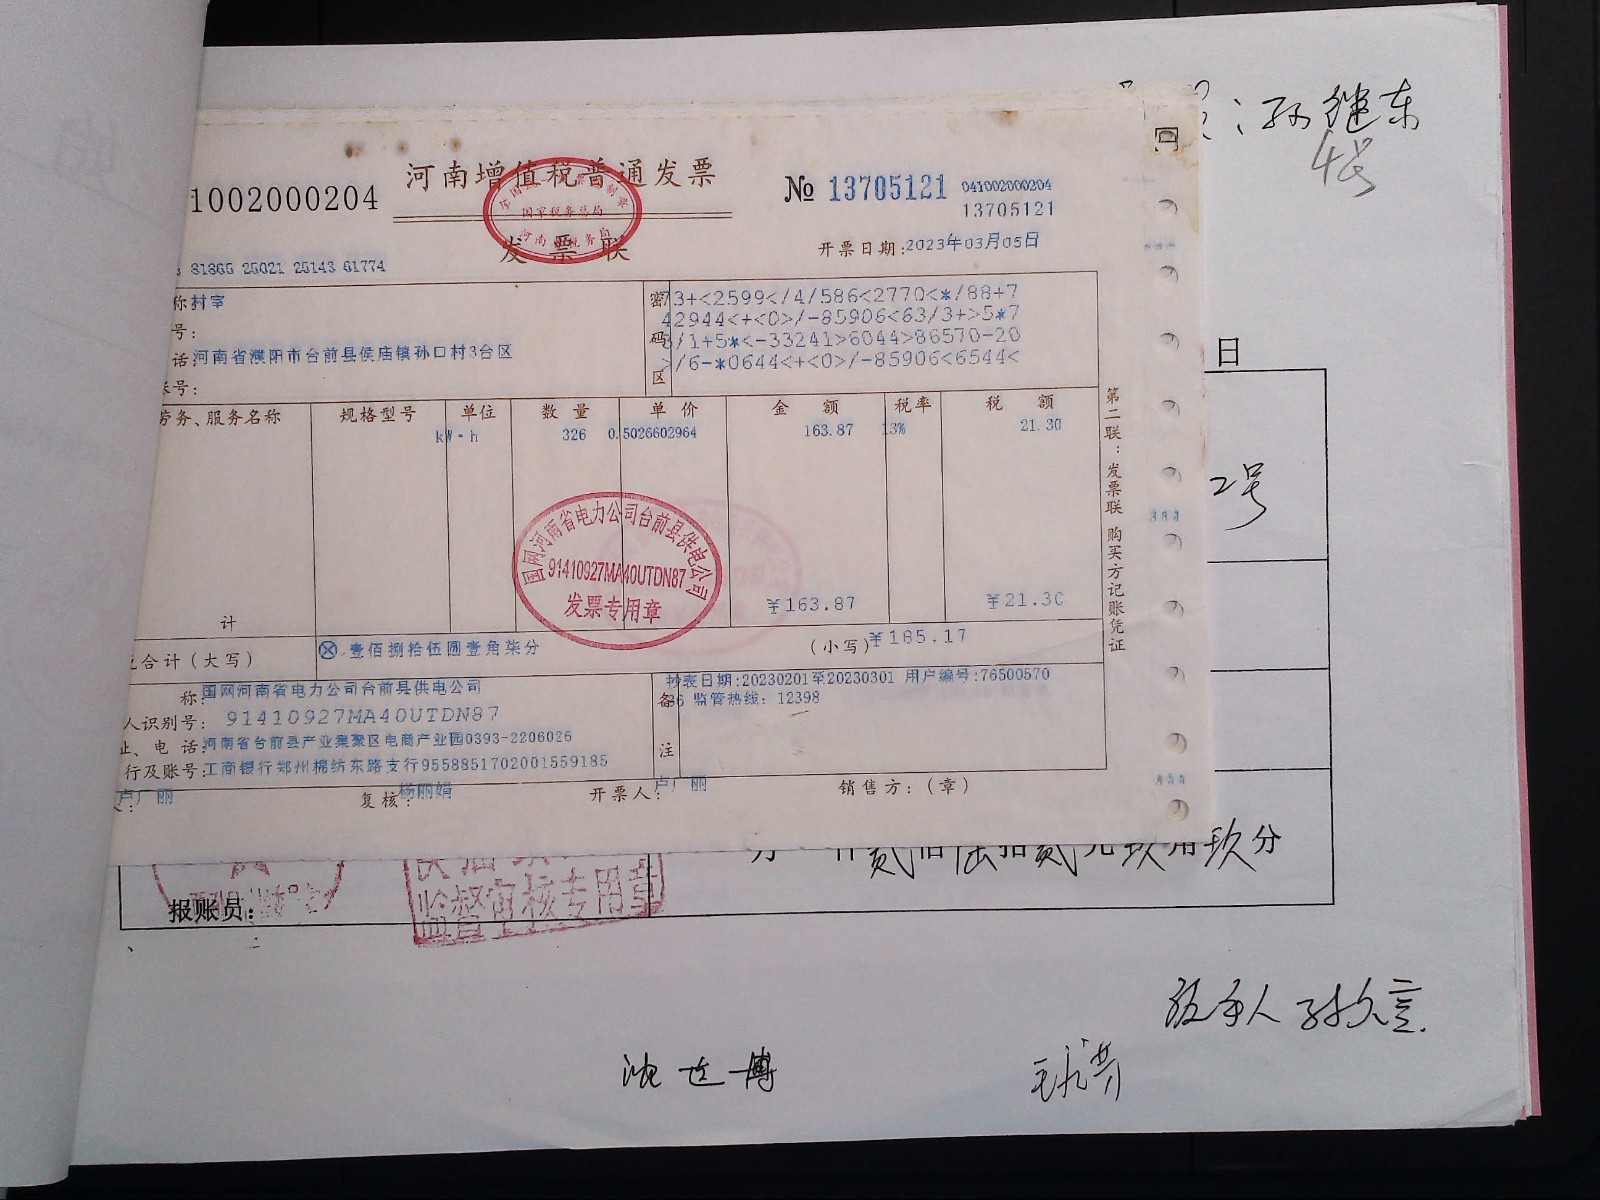 ：孙继东
4号
河南增值税普通发票
1002000204
№ 13705121
041002000204
13705121
全国统一发票监制章
国家税务总局
河南省税务局
发票联
开票日期:2023年03月05日
81865 25021 25143 61774
称 村室
号：
话：河南省濮阳市台前县侯庙镇孙口村3台区
账号：
密码区
73+<2599</4/586<2770<*/88+7
42944<+<0>/-85906<63/3+>5*7
/1+5*<-33241>6044>86570-20
>/6-*0644<+<0>/-85906<6544<
日
劳务、服务名称 规格型号 单位 数量 单价 金额 税率 税额
kW·h 326 0.5026602964 163.87 13% 21.30
第二联：发票联 购买方记账凭证
2号
国网河南省电力公司台前县供电公司
91410927MA40UTDN87
发票专用章
计 ¥163.87 ¥21.30
税合计（大写） ⊗ 壹佰捌拾伍圆壹角柒分 （小写）¥185.17
称：国网河南省电力公司台前县供电公司
人识别号：91410927MA40UTDN87
址、电话：河南省台前县产业集聚区电商产业园0393-2206026
行及账号：工商银行郑州棉纺东路支行9558851702001559185
备注
抄表日期:20230201至20230301 用户编号:76500570
36 监管热线：12398
人：卢广丽 复核：杨丽娟 开票人：卢广丽 销售方：（章）
万 仟贰佰陆拾贰元玖角玖分
监督审核专用章
报账员：
经手人 孙久言